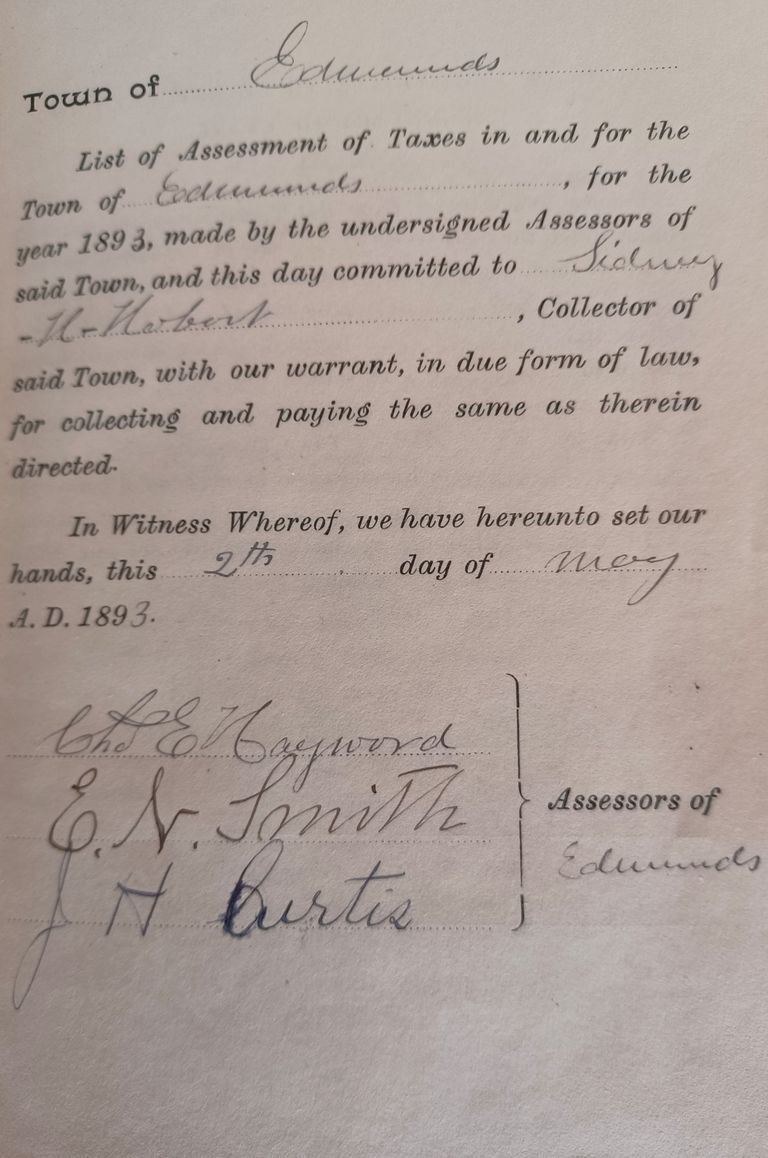 Town of Edmunds
List of Assessment of Taxes in and for the
Town of Edmunds, for the
year 1893, made by the undersigned Assessors of
said Town, and this day committed to Sidney
-H-Hobart, Collector of
said Town, with our warrant, in due form of law,
for collecting and paying the same as therein
directed.
In Witness Whereof, we have hereunto set our
hands, this 2th day of may
A. D. 1893.
Chs E Hayword
E. N. Smith
J H Curtis
Assessors of
Edmunds